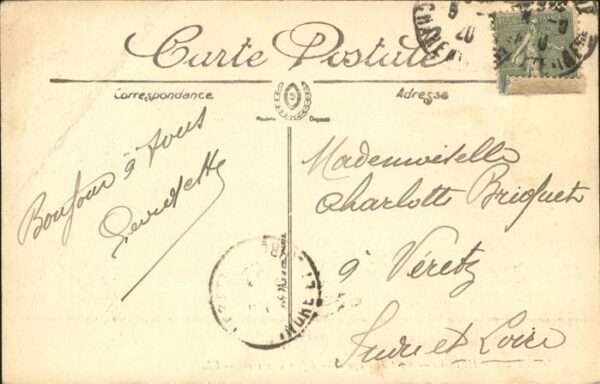 Carte Postale
Correspondance
Adresse
Modèle Déposé
Bonjour à tous
Mademoiselle
Charlotte Briquet
à Véretz
Indre et Loire
20
INDRE